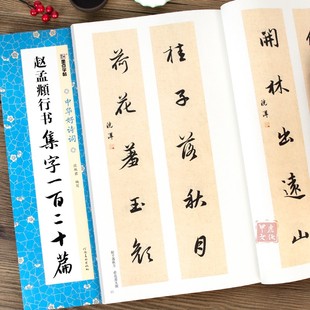 墨点字帖
中华好诗词
赵孟頫行书
集字一百二十篇
開林出遠山
桂子落秋月
荷花羞玉顏